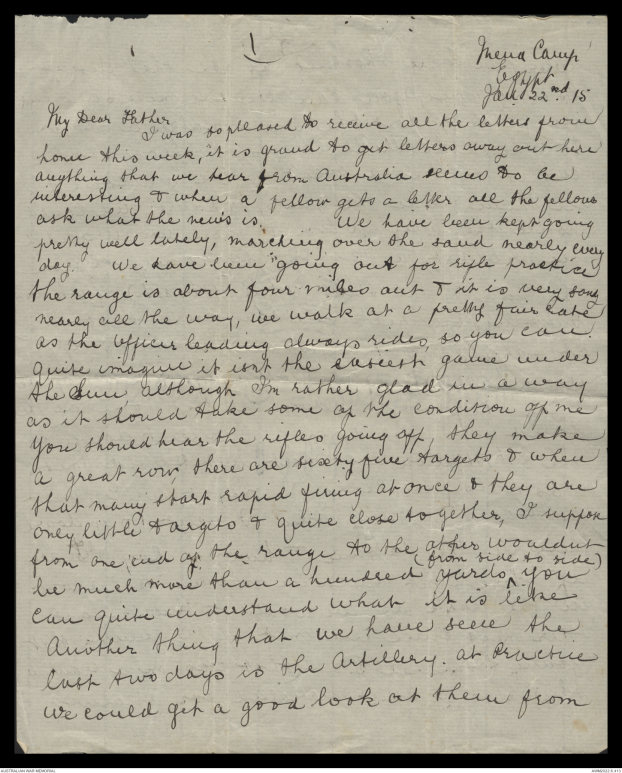 1
Mena Camp
Egypt
Jan. 22nd. 15
My Dear Father
I was so pleased to receive all the letters from
home this week, it is grand to get letters away out here
anything that we hear from Australia seems to be
interesting & when a fellow gets a letter all the fellows
ask what the news is. We have been kept going
pretty well lately, marching over the sand nearly every
day. We have been going out for rifle practice
the range is about four miles out & it is very sandy
nearly all the way, we walk at a pretty fair rate
as the officer leading always rides, so you can
quite imagine it isn't the easiest game under
the Sun, although I'm rather glad in a way
as it should take some of the condition off me
You should hear the rifles going off, they make
a great row, there are sixty five targets & when
that many start rapid firing at once & they are
only little targets & quite close together, I suppose
from one end of the range to the other wouldnt
(from side to side)
be much more than a hundred yards, you
can quite understand what it is like
Another thing that we have seen the
last two days is the Artillery. at Practice
we could get a good look at them from
AUSTRALIAN WAR MEMORIAL